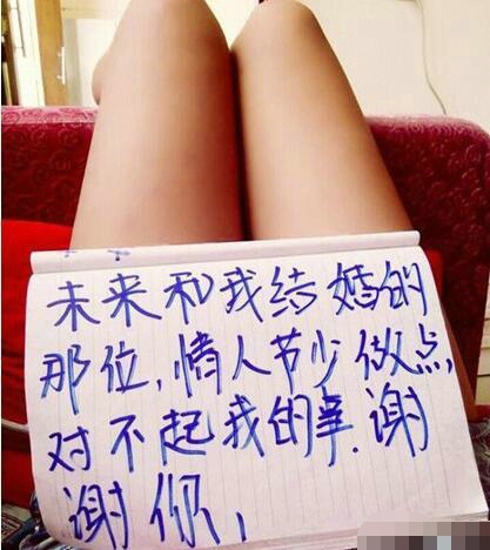 未来和我结婚的
那位,情人节少做点,
对不起我的事.谢
谢你,